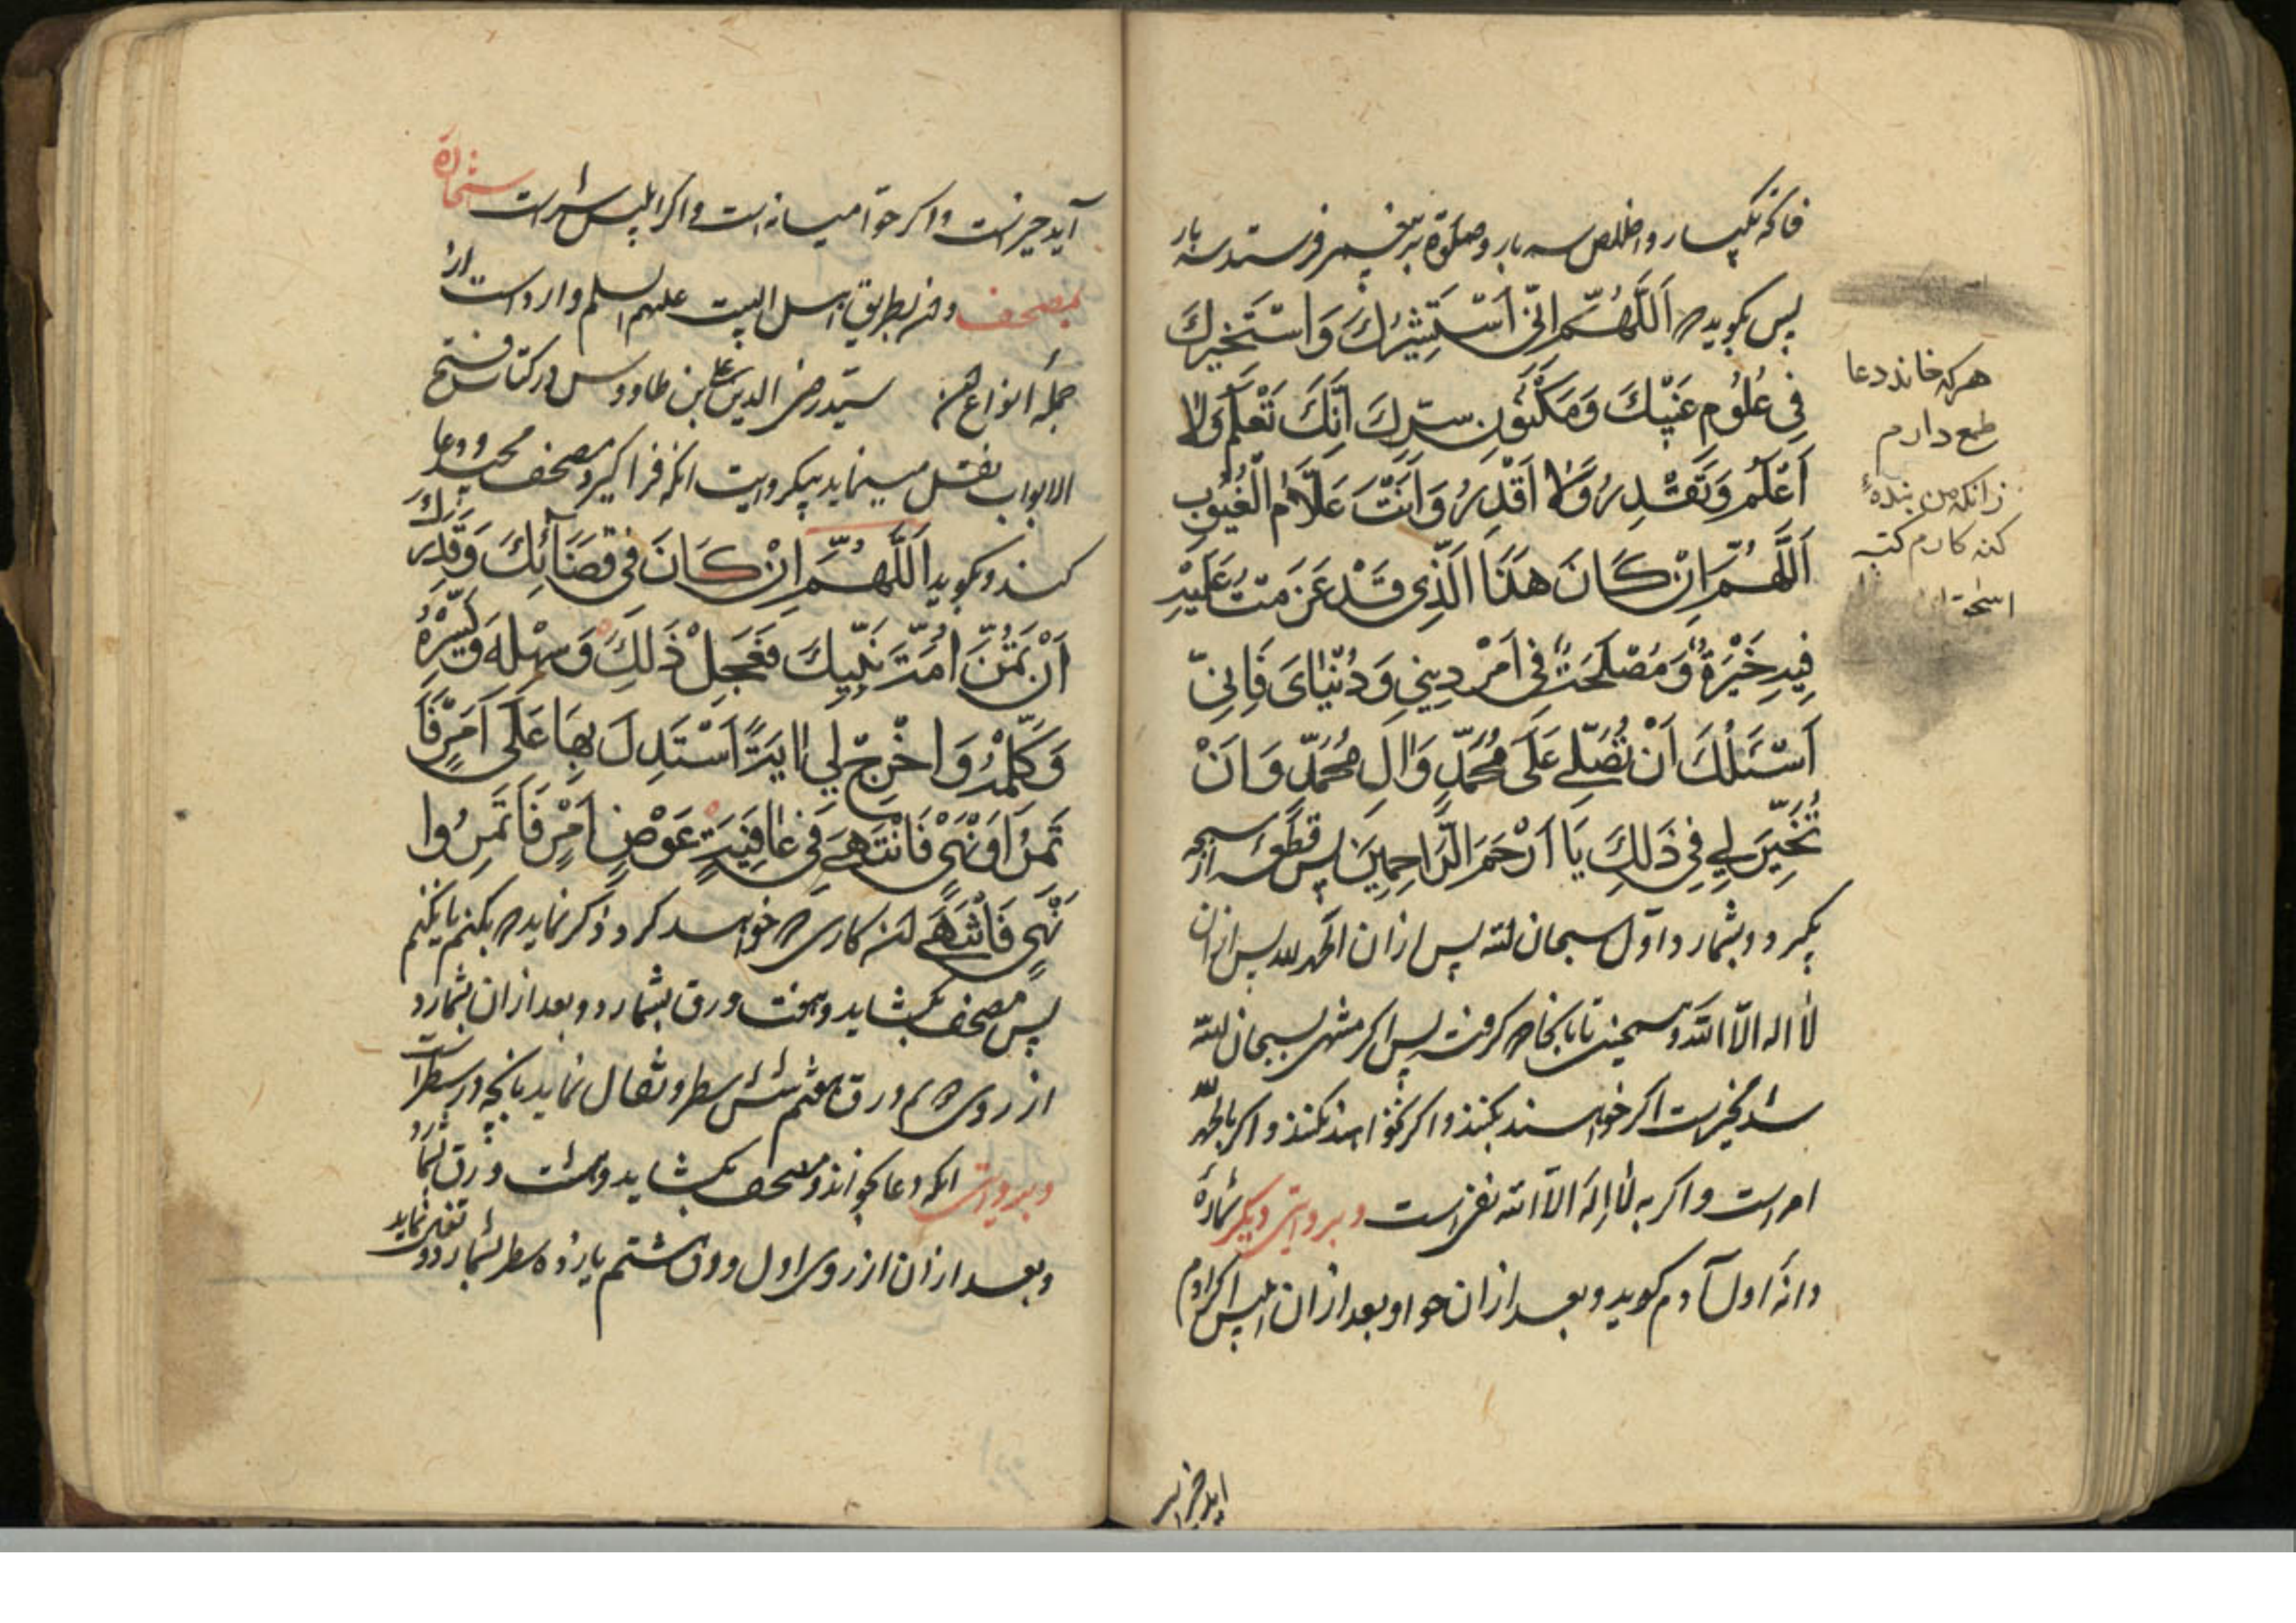 فاتحه یکبار و اخلاص سه بار و صلوة بر پیغمبر فرستد سه بار
پس بکوید که اَللّٰهُمَّ اِنّی اَسْتَشیٖرُكَ وَاَسْتَخیٖرُكَ
فِی عُلُومِ غَیْبِكَ وَمَکْنُونِ سِرِّكَ اِنَّكَ تَعْلَمُ وَلا
اَعْلَمُ وَتَقْدِرُ وَلا اَقْدِرُ وَاَنْتَ عَلّامُ الْغُیُوبِ
اَللّٰهُمَّ اِنْ کَانَ هٰذَا الَّذِی قَدْ عَزَمْتُ عَلَیْهِ
فِیهِ خَیْرَةٌ وَمَصْلَحَةٌ فِی اَمْرِ دِینِی وَدُنْیَایَ فَاِنِّی
اَسْئَلُكَ اَنْ تُصَلِّیَ عَلٰی مُحَمَّدٍ وَالِ مُحَمَّدٍ وَاَنْ
تُخَیِّرَ لِی فِی ذٰلِكَ یَا اَرْحَمَ الرَّاحِمِینَ پس قطعه از سبحه
بکیرد و بشمارد اول سبحان الله پس ازان الحمد لله پس ازان
لا اله الا الله و همچنین تا بانجا که کرفته پس اکر منتهی بسبحان الله
شد مخیر است اکر خواهند بکنند و اکر نخواهند نکنند و اکر بالحمد لله
امر است و اکر به لا اله الا الله نهی است و بروایتی دیکر شمارهٔ
دانهٔ اول آدم کوید و بعد ازان حوا و بعد ازان ابلیس اکر آدم
آید خیر است
هرکه خاند دعا
طمع دارم
زانکه من بندهٔ
کنه کارم کتبه
آید خیر است و اکر حوا میانه است و اکر ابلیس شر است استخارهٔ
بمصحف و ان بطریق اهل البیت علیهم السلم وارد است از
جمله انواع ان سید رضی الدین علی بن طاووس در کتاب فتح
الابواب نقل مینماید بیکروایت انکه فرا کیرد مصحف مجید و دعا
کند و بکوید اَللّٰهُمَّ اِنْ کَانَ فِی قَضَائِكَ وَقَدَرِكَ
اَنْ تَمُنَّ اُمَّةَ نَبِیِّكَ فَعَجِّلْ ذٰلِكَ وَسَهِّلْهُ وَیَسِّرْهُ
وَکَمِّلْهُ وَاَخْرِجْ لِی اٰیَةً اَسْتَدِلَّ بِهَا عَلٰی اَمْرٍ فَا
تَمِرُ اَوْ نَهْیٍ فَاَنْتَهِی فِی عَافِیَةٍ عَوْضٍ اَمْرٍ فَاَتَمِرُ وا
نَهْیٍ فَاَنْتَهِی ان کاری که خواهد کرد ذکر نماید که بکنم یا نکنم
پس مصحف بکشاید و هفت ورق بشمارد و بعد ازان بشمارد
از روی دوم ورق هفتم شش سطر و تفال نماید بانچه در سطر است
و بروایتی انکه دعا بخواند و مصحف بکشاید و هشت ورق بشمارد
و بعد ازان از روی اول ورق هشتم یازده سطر بشمارد و تفال نماید